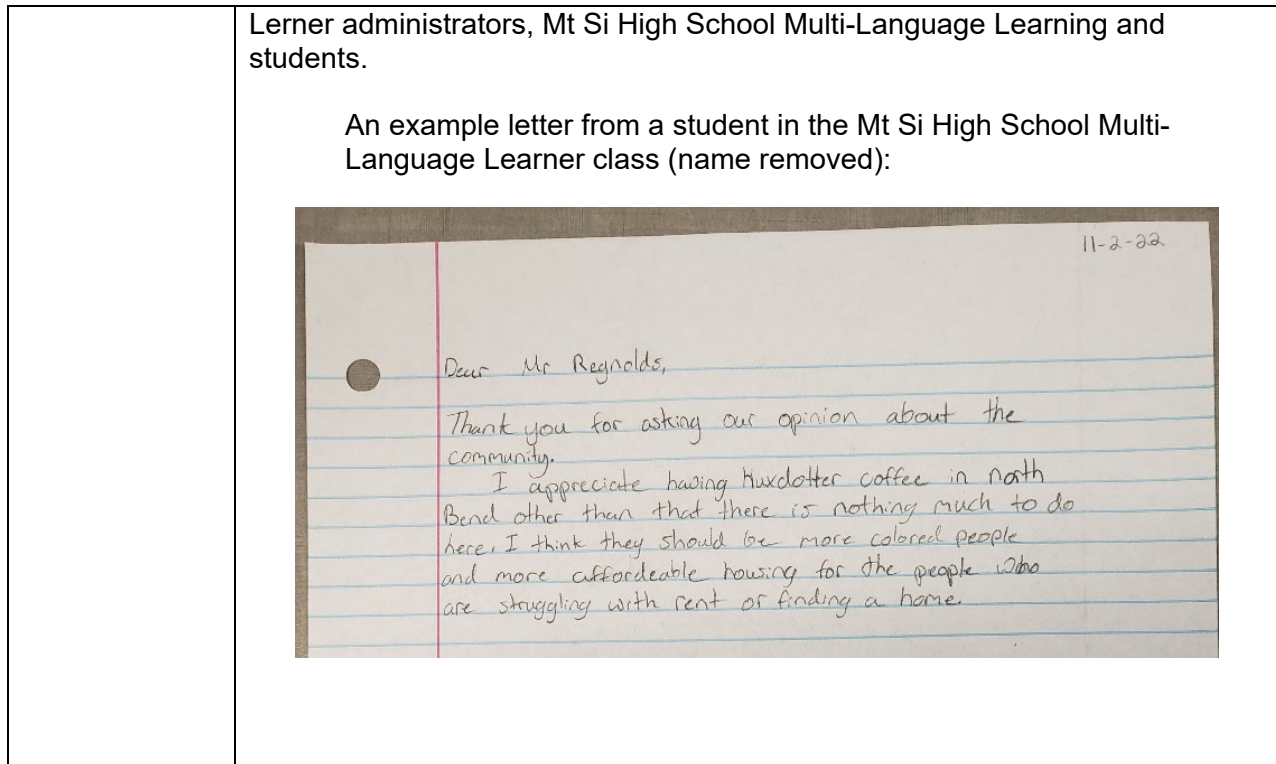 Lerner administrators, Mt Si High School Multi-Language Learning and
students.
An example letter from a student in the Mt Si High School Multi-
Language Learner class (name removed):
11-2-22
Dear Mr Regnolds,
Thank you for asking our opinion about the
community.
I appreciate having Huxdotter coffee in north
Bend other than that there is nothing much to do
here. I think they should be more colored people
and more affordeable housing for the people who
are struggling with rent or finding a home.